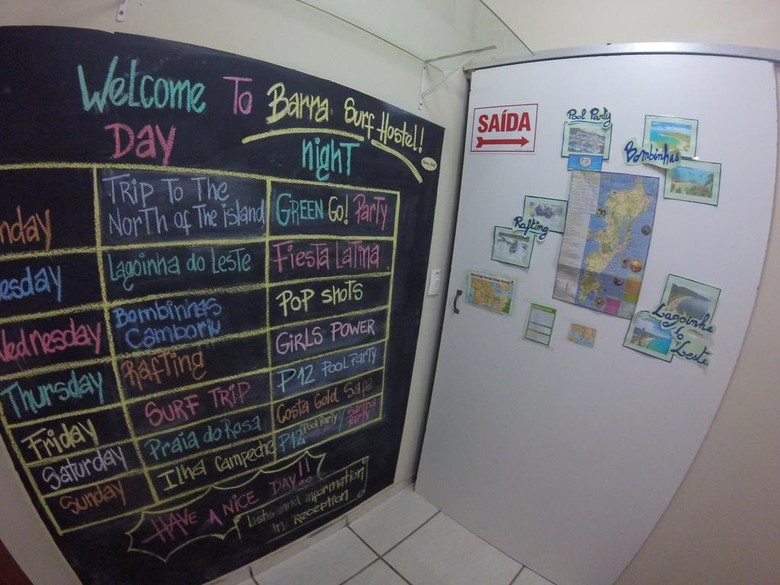 Welcome To Barra Surf Hostel!
DAY
nighT
nday
TRIP TO THE
NORTH of THE island
GREEN GO! PaRTy
esday
Lagoinha do LesTe
FiesTa LaTina
Wednesday
Bombinhas
Camboriu
POP SHOTS
Thursday
RafTing
GiRLS POWER
Friday
SURF TRIP
P12 POOL PARTY
Saturday
Praia do Rosa
Costa Gold Safe
Sunday
Ilha Campeche
P12 Pool Party // Samba Party
HAVE A NICE DAY!!
Lists and information
in Reception
SAÍDA
Pool Party
Bombinhas
Rafting
Lagoinha
do
Leste